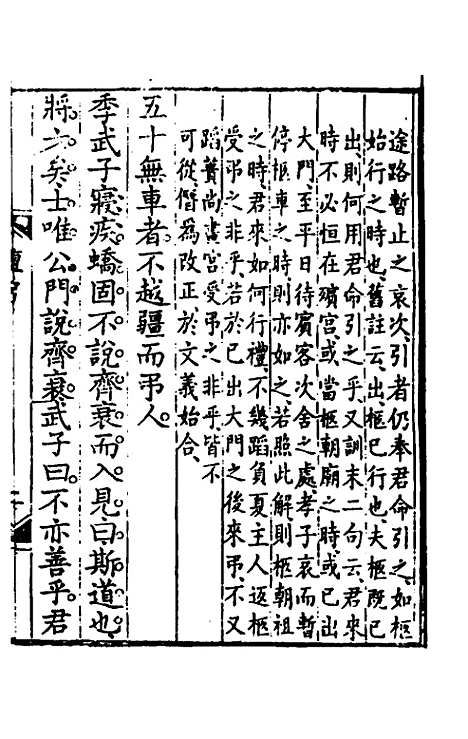 途路暫止之哀次、引者仍奉君命引之、如柩
始行之時也、舊註云、出、柩已行也、夫柩既已
出、則何用君命引之乎、又訓末二句云、君來
時不必恒在殯宮、或當柩朝廟之時、或已出
大門、至平日待賓客次舍之處、孝子哀而暫
停柩車之時、則亦如之、若照此解、則柩朝祖
之時、君來如何行禮、不幾蹈負夏主人返柩
受弔之非乎、若於已出大門之後來弔、不又
蹈蕢尚畫宮受弔之非乎、皆不
可從、僭為改正、於文義始合、
五十無車者不越疆而弔人。
季武子寢疾、蟜固不說齊衰而入見、曰、斯道也、
將亡矣、士唯公門說齊衰、武子曰、不亦善乎、君